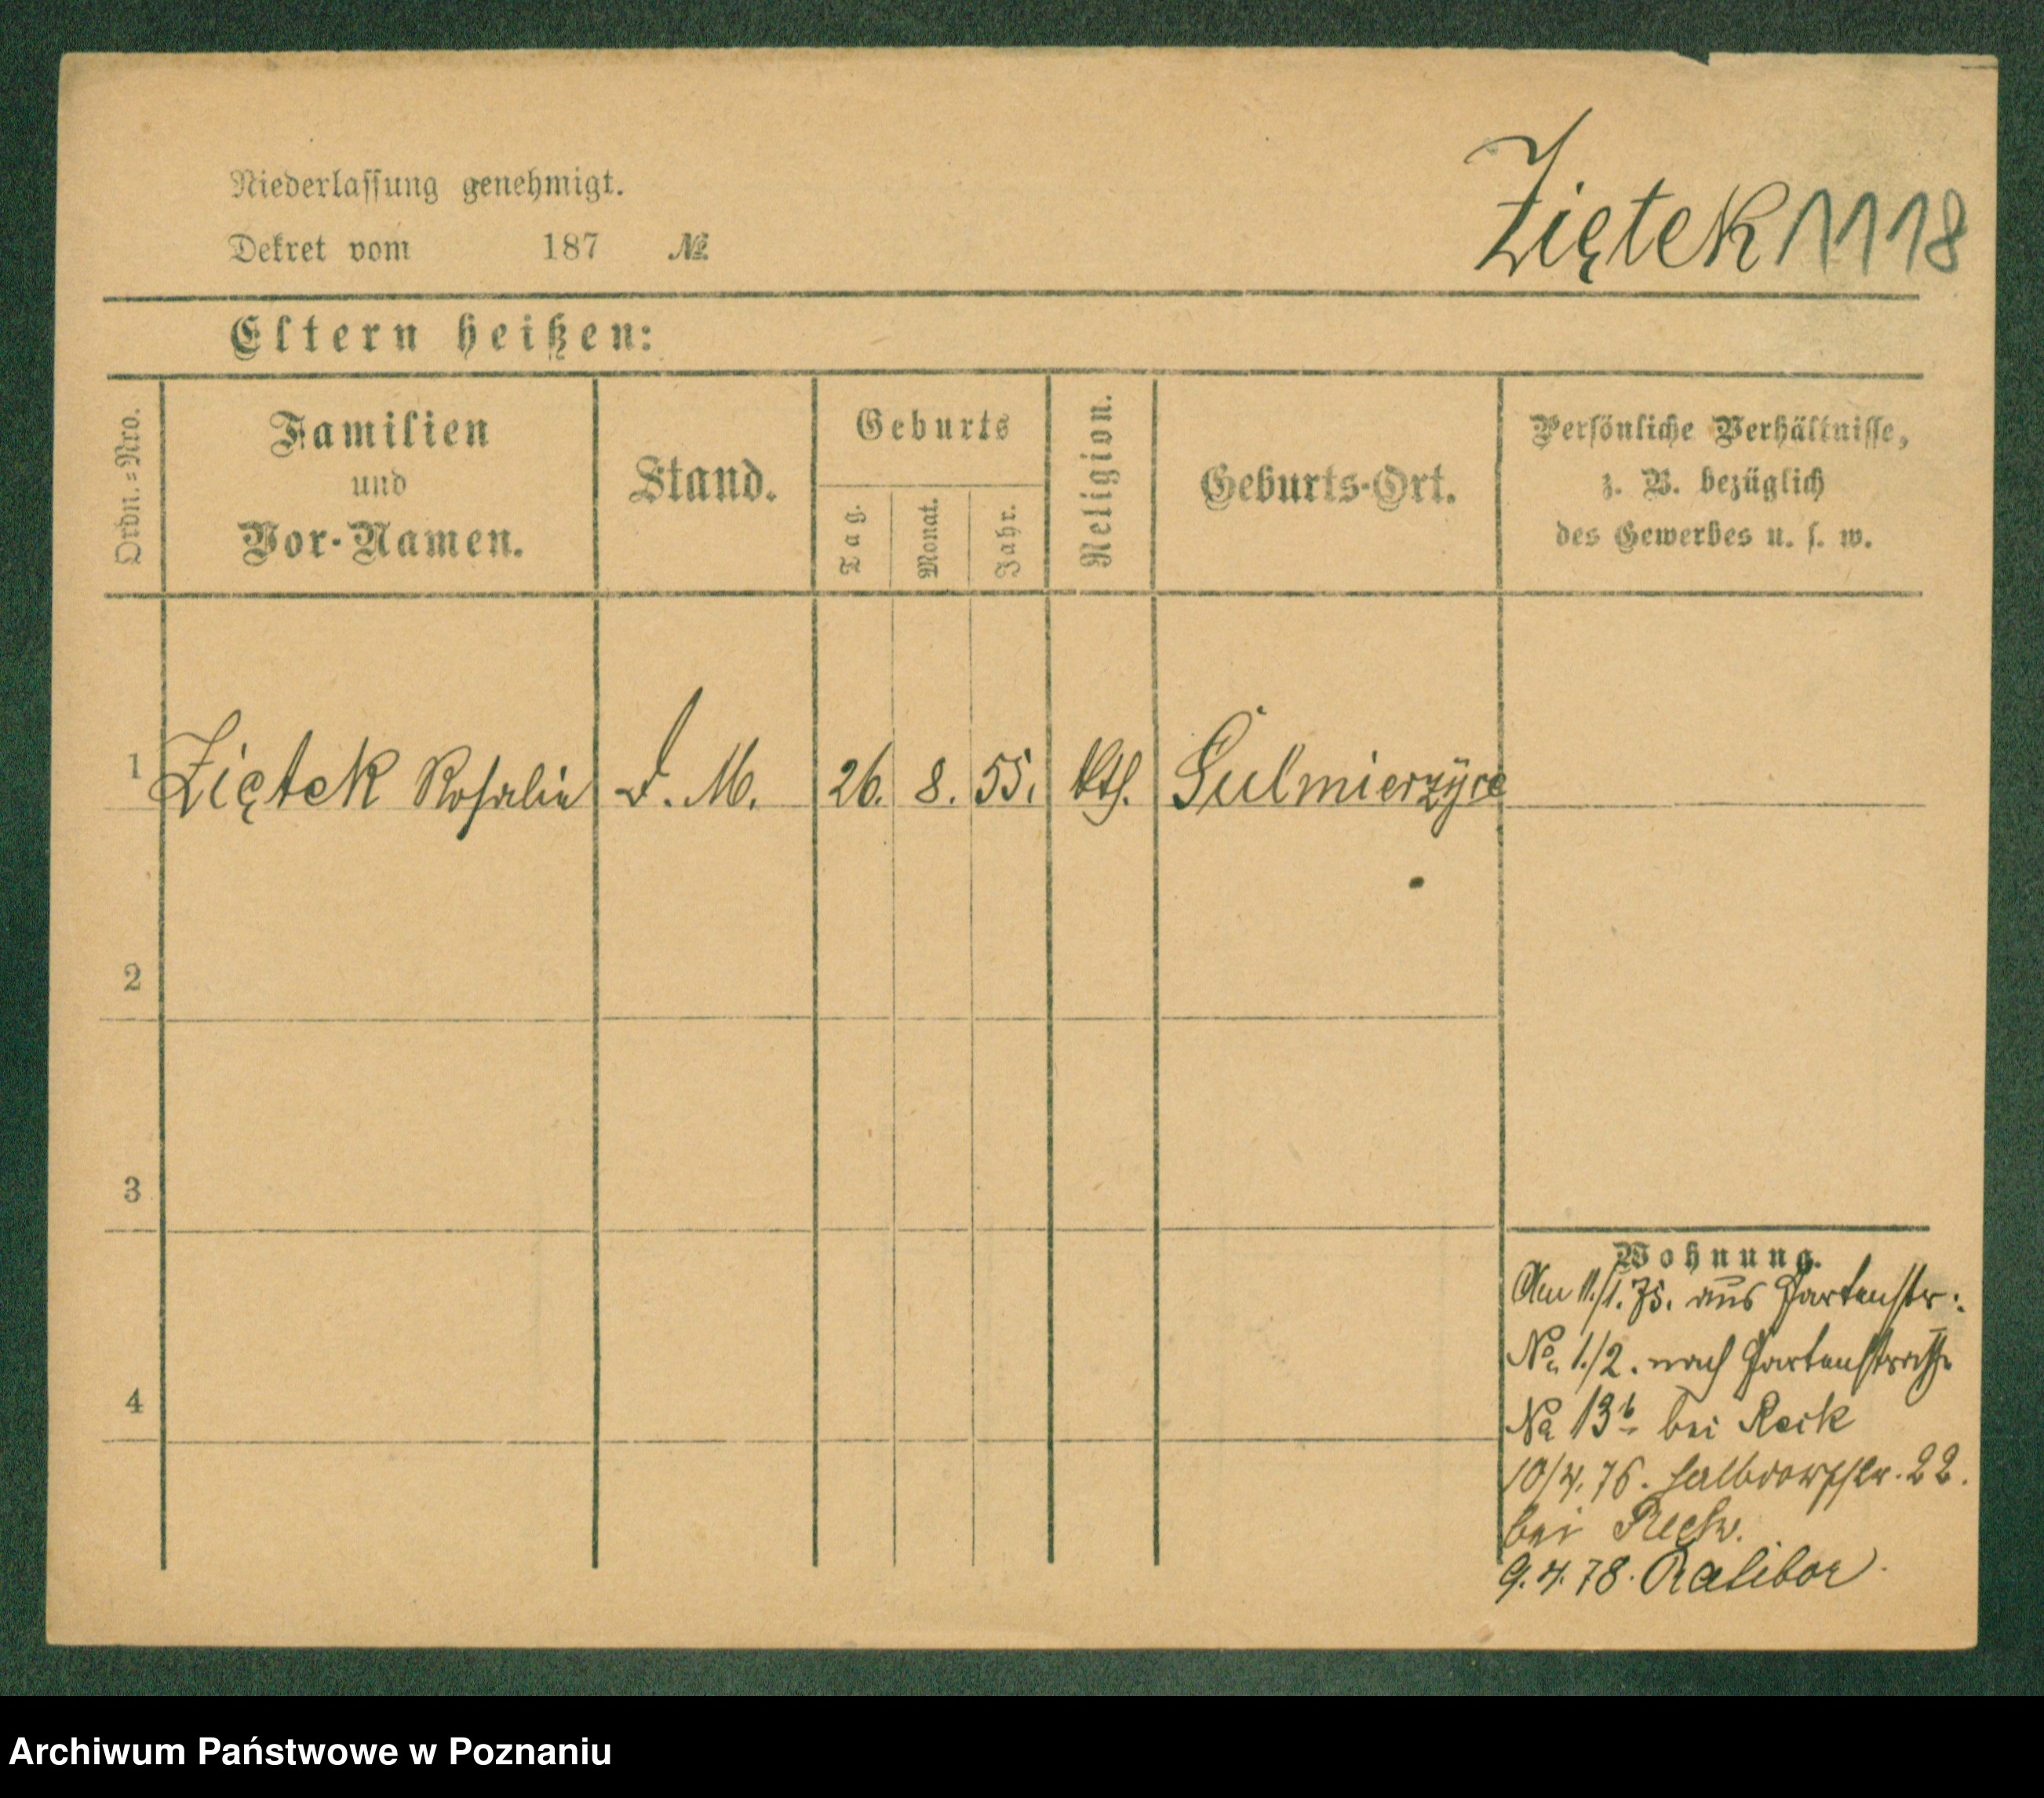 Niederlassung genehmigt.
Dekret vom 187 №
Ziętek 1118
Eltern heißen:
Ordn.-Nro.
Familien
und
Vor-Namen.
Stand.
Geburts
Tag.
Monat.
Jahr.
Religion.
Geburts-Ort.
Persönliche Verhältnisse,
z. B. bezüglich
des Gewerbes u. s. w.
1 Ziętek Rosalie D. M. 26. 8. 55. kth. Sulmierzÿce
2
3
4
Wohnung.
Am 11./1. 75. aus Gartenstr:
No 1./2. nach Gartenstraße
No 13b bei Reik
10/4. 76. Halbdorfstr. 22.
bei
9. 4. 78. Ratibor
Archiwum Państwowe w Poznaniu